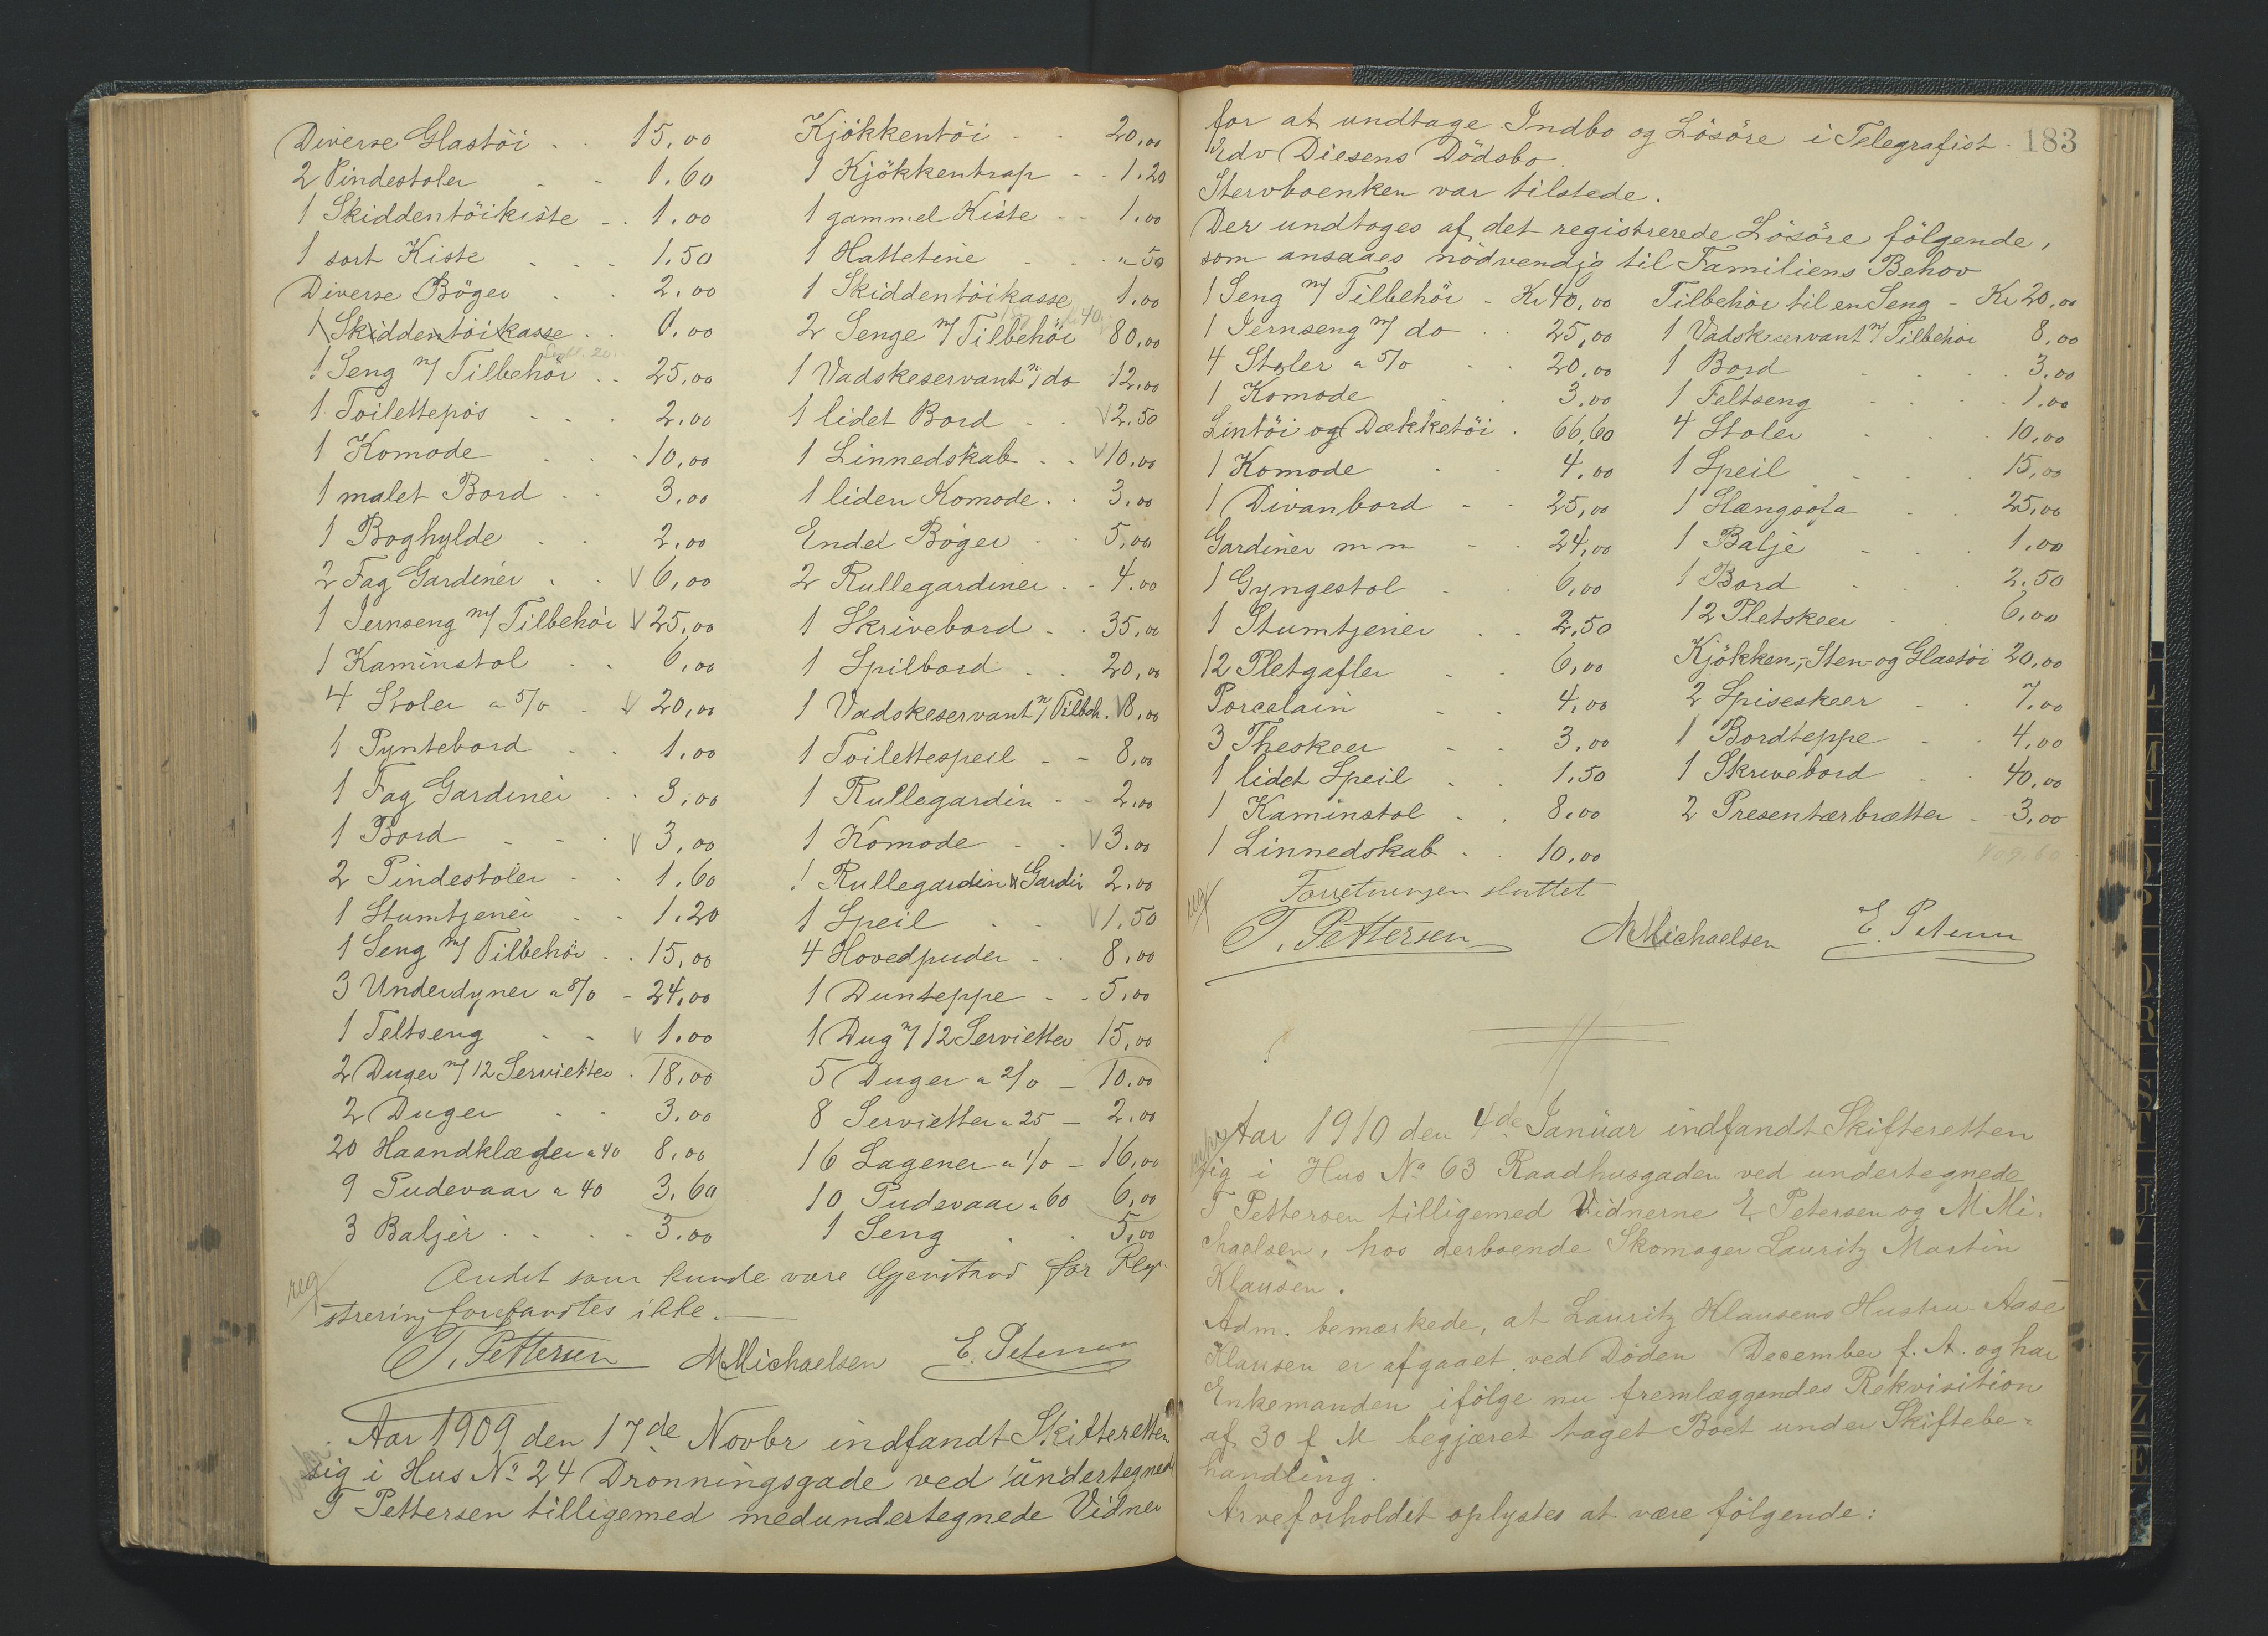 Diverse Glastöi . . 15,00
2 Pindestoler - - 1.60
1 Skiddentöikiste - . 1.00
1 sort Kiste . . . 1.50
Diverse Böger . . 2.00
1 Skiddentöikasse . . 0.00
1 Seng m/ Tilbehör . . 25,00
1 Toilettepös - . . 2,00
1 Komode . . . 10,00
1 malet Bord . . 3.00
1 Boghylde . . 2,00
2 Fag Gardiner . . V 6,00
1 Jernseng m/ Tilbehör V 25,00
1 Kaminstol . . 6,00
4 Stoler a 5/0 . V 20,00
1 Pyntebord . . 1.00
1 Fag Gardiner . . 3,00
1 Bord - - . V 3,00
2 Pindestoler . . 1.60
1 Stumtjener . . 1.20
1 Seng m/ Tilbehör . . 15,00
3 Underdyner a 8/0 - 24,00
1 Feltseng . . V 1.00
2 Duger m/ 12 Servietter . 18,00
2 Duger . . 3.00
20 Haandklæder a 40 8,00
9 Pudevaar a 40 3,60
3 Baljer . . . . 3.00
Kjökkentöi - - 20,00
1 Kjökkentrap - - 1.20
1 gammel Kiste - - 1.00
1 Hattetine - . . " 50
1 Skiddentöikasse 1.00
2 Senge m/ Tilbehör 80,00
1 Vadskeservant m/ do 12,00
1 lidet Bord . . V 2.50
1 Linnedskab . . V 10,00
1 liden Komode . . 3.00
Endel Böger . . 5,00
2 Rullegardiner . - 4.00
1 Skrivebord . . 35,00
1 Spilbord . . 20,00
1 Vadskeservant m/ Tilbeh. V 8,00
1 Toilettespeil - - 8,00
1 Rullegardin - - 2,00
1 Komode - . V 3.00
1 Rullegardin & Gardin 2,00
1 Speil . . V 1,50
4 Hovedpuder - . 8,00
1 Dunteppe - - 5,00
1 Dug m/ 12 Servietter 15,00
5 Duger a 2/0 - 10.00
8 Servietter a 25 - 2,00
16 Lagener a 1/0 - 16,00
10 Pudevaar a 60 6,00
1 Seng . . 5,00
reg Andet som kunde være Gjenstand for Regi
strering forefandtes ikke. -
T. Pettersen M Michaelsen E. Petersen
Aar 1909 den 17de Novbr indfandt Skifteretten
sig i Hus No 24 Dronningsgade ved undertegnede
T Pettersen tilligemed medundertegnede Vidner
183
for at undtage Indbo og Lösöre i Telegrafist
Edv Diesens Dödsbo.
Stervboenken var tilstede.
Der undtoges af det registrerede Lösöre fölgende,
som ansaaes nödvendig til Familiens Behov
1 Seng m/ Tilbehör - Kr 40,00
1 Jernseng m/ do . . 25,00
4 Stoler a 5/0 . . 20,00
1 Komode . . 3,00
Lintöi og Dækketöi . 66,60
1 Komode . . 4,00
1 Divanbord - - 25,00
Gardiner m m - . 24,00
1 Gyngestol . . 6,00
1 Stumtjener . . 2,50
12 Pletgafler . . 6,00
Porcelain - . 4,00
3 Theskeer - - 3,00
1 lidet Speil . . 1,50
1 Kaminstol . . 8.00
1 Linnedskab . . 10,00
Tilbehör til en Seng - Kr 20,00
1 Vadskeservant m/ Tilbehör 8,00
1 Bord . . . 3.00
1 Feltseng . . . 1.00
4 Stoler . . . 10,00
1 Speil . . . 15,00
1 Slængsofa . . 25,00
1 Balje . . . 1,00
1 Bord . . . 2.50
12 Pletskeer . . 6,00
Kjökken,- Sten- og Glastöi 20,00
2 Spiseskeer . . 7.00
1 Bordteppe - . 4,00
1 Skrivebord . . 40,00
2 Presentærbrætter - 3,00
409.60
reg Forretningen sluttet
T. Pettersen M Michaelsen E. Petersen
Aar 1910 den 4de Januar indfandt Skifteretten
sig i Hus No 63 Raadhusgaden ved undertegnede
T Pettersen tilligemed Vidnerne E Petersen og M Mi-
chaelsen, hos derboende Skomager Lauritz Martin
Klausen.
Adm. bemærkede, at Lauritz Klausens Hustru Aase
Klausen er afgaaet ved Döden December f. A. og har
Enkemanden ifölge nu fremlæggendes Rekvisition
af 30 f M begjæret taget Boet under Skiftebe-
handling.
Arveforholdet oplystes at være fölgende: